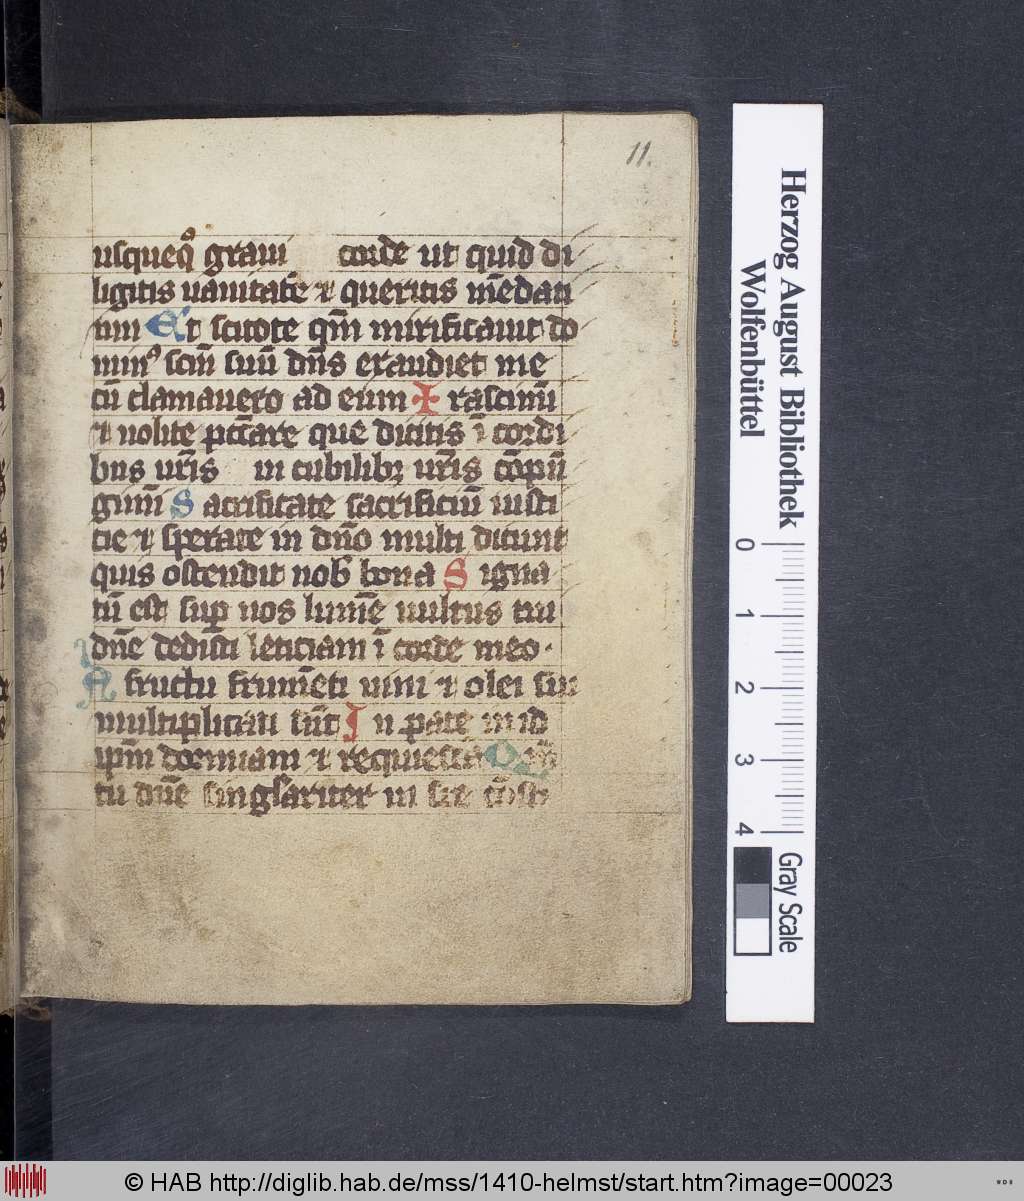 11.
usqueq̊ graui corde ut quid di
ligitis uanitatē ⁊ queritis mēdati
um Et scitote qm̄ mirificauit do
minꝰ scm̄ suū dn̄s exaudiet me
cū clamauero ad eum Irascimī
⁊ nolite pcc̄are que dicitis ī cordi
bus ur̄is in cubilibꝫ ur̄is cōpū
gimī Sacrificate sacrificiū iusti
cie ⁊ sperate in dn̄o multi dicunt
quis ostendit nob̄ bona Signa
tū est suꝑ nos lumē uultus tui
dn̄e dedisti leticiam ī corde meo.
A fructu frumēti uini ⁊ olei sui
multiplicati sūt In pace in id
ipm̄ dormiam ⁊ requiescā
tu dn̄e singlariter in spe cōsti
Herzog August Bibliothek
Wolfenbüttel
0 1 2 3 4
Gray Scale
© HAB http://diglib.hab.de/mss/1410-helmst/start.htm?image=00023